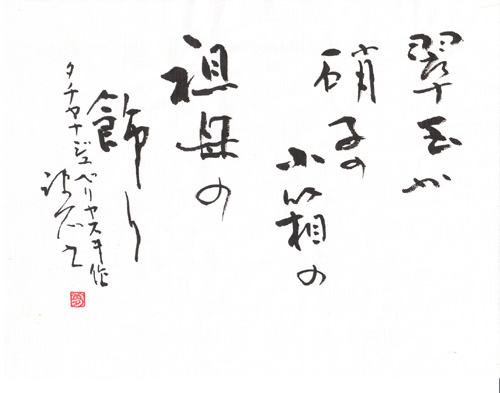 翠玉か
硝子の
小箱の
祖母の
飾り
タチヤナ・ジュベリヤスキ作